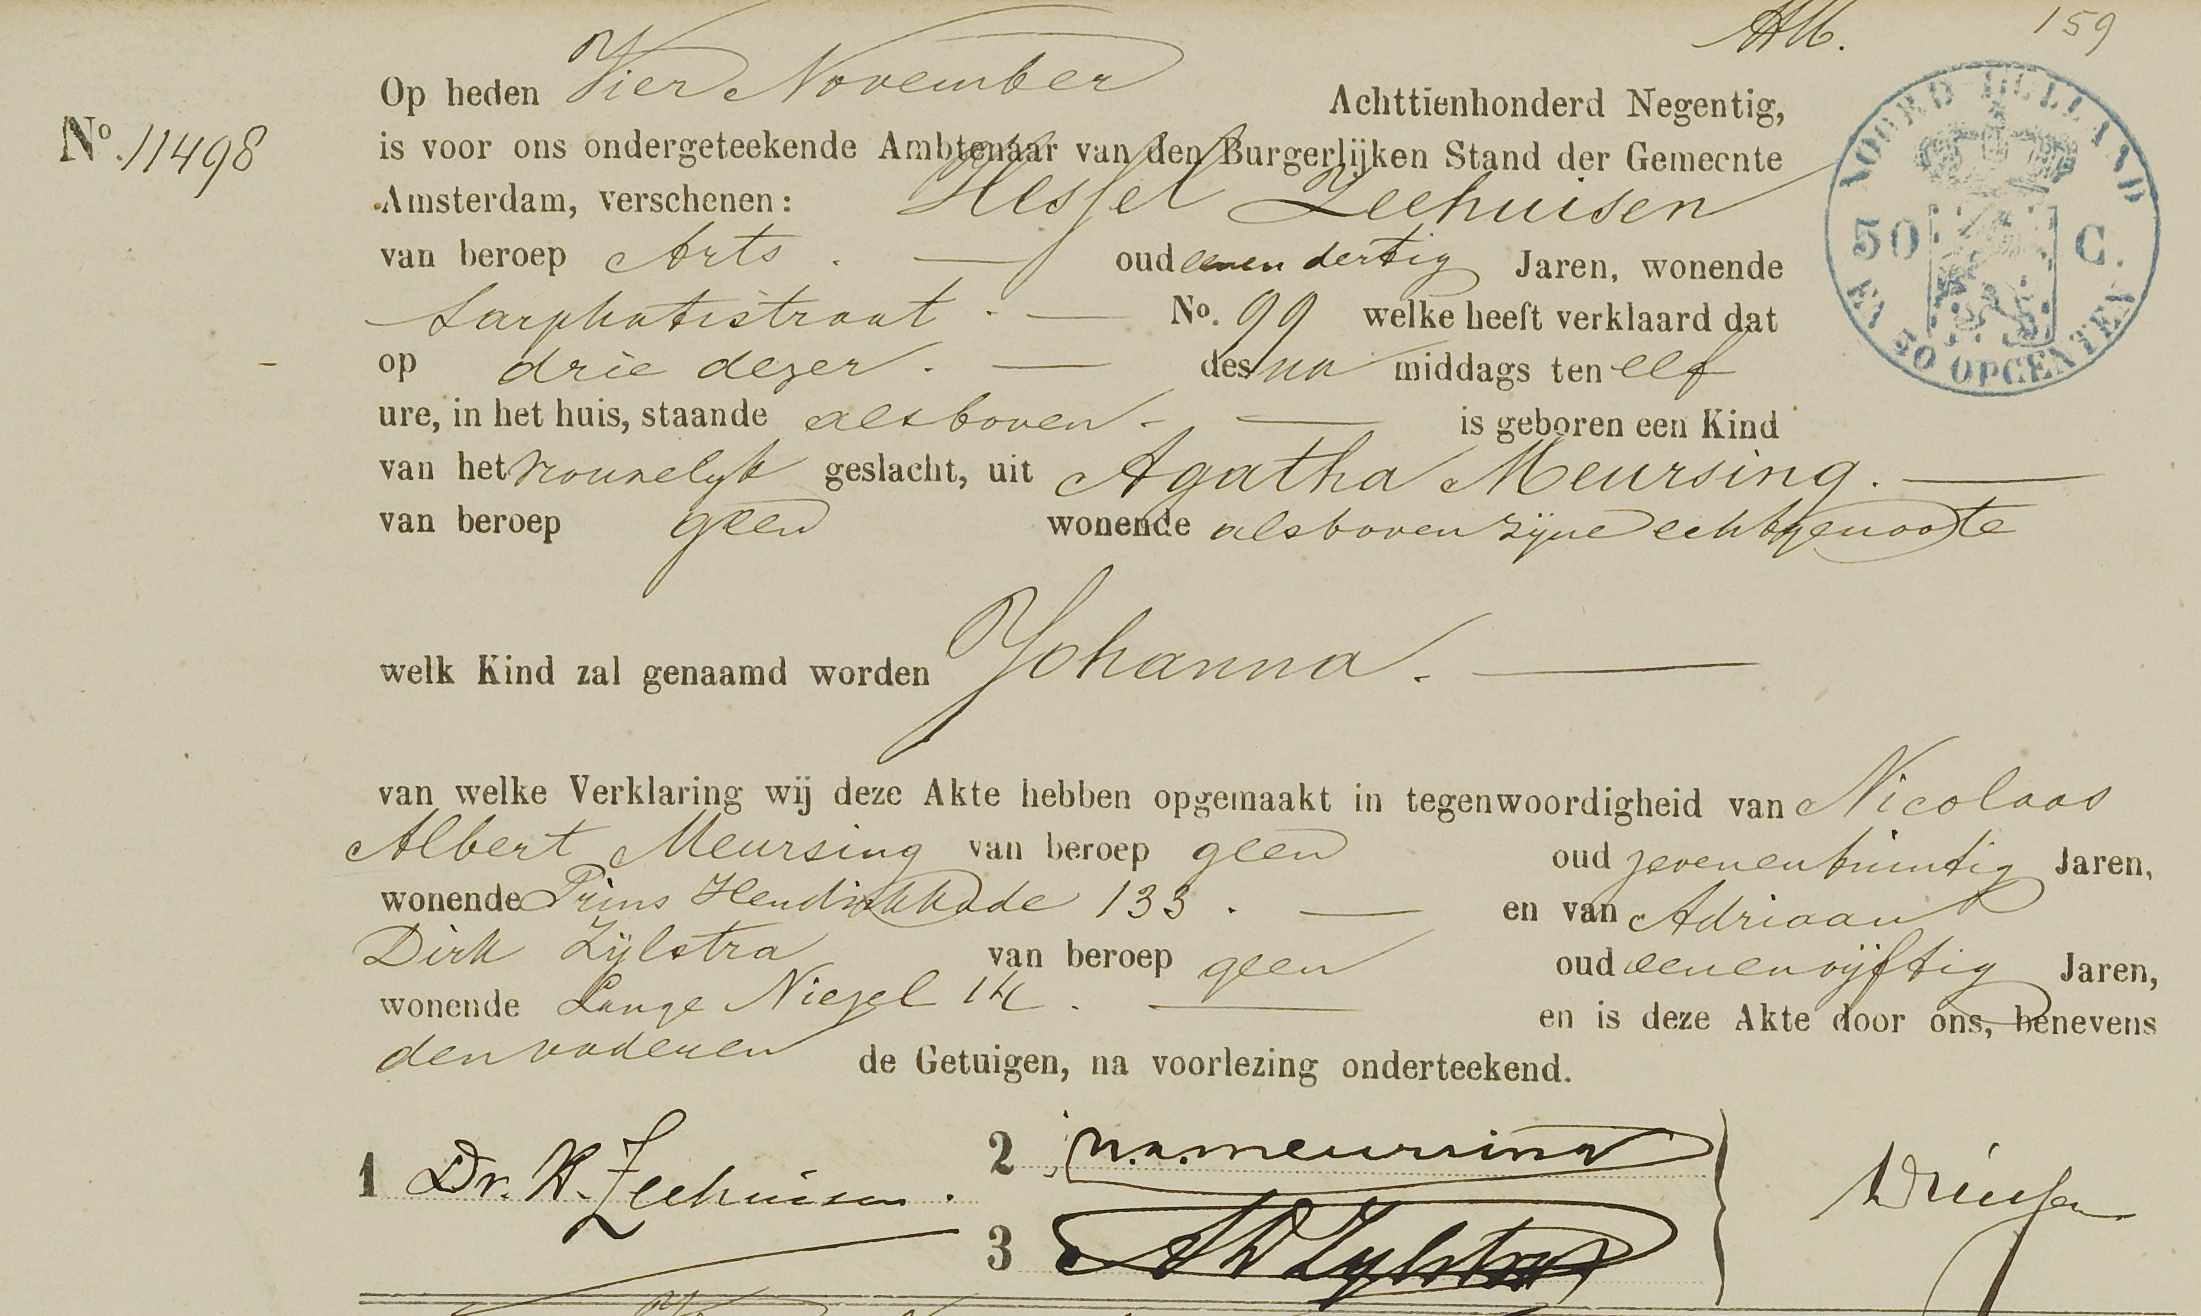 159
Op heden Vier November Achttienhonderd Negentig,
No. 11498
is voor ons ondergeteekende Ambtenaar van den Burgerlijken Stand der Gemeente
Amsterdam, verschenen: Hessel Zeehuisen
van beroep Arts. oud eenen dertig Jaren, wonende
Sarphatistraat. No. 99 welke heeft verklaard dat
op drie dezer. des na middags ten elf
ure, in het huis, staande alsboven is geboren een Kind
van het vrouwelijk geslacht, uit Agatha Meursing.
van beroep geen wonende alsboven zijne echtgenoote
welk Kind zal genaamd worden Johanna.
van welke Verklaring wij deze Akte hebben opgemaakt in tegenwoordigheid van Nicolaas
Albert Meursing van beroep geen oud zevenentwintig Jaren,
wonende Prins Hendrikkade 133. en van Adriaan
Dirk Zijlstra van beroep geen oud eenenvijftig Jaren,
wonende Lange Niezel 14. en is deze Akte door ons, benevens
den vader en de Getuigen, na voorlezing onderteekend.
1 Dr. H. Zeehuisen.
2 n.a. meursing
3 AD Zylstra
NOORD HOLLAND
50 C.
EN 50 OPCENTEN